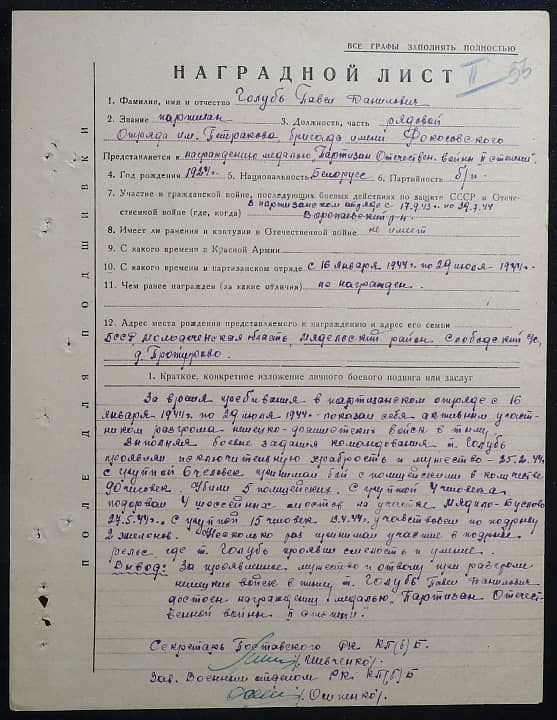 ВСЕ ГРАФЫ ЗАПОЛНЯТЬ ПОЛНОСТЬЮ
НАГРАДНОЙ ЛИСТ II
1. Фамилия, имя и отчество Голубь Павел Данилович
2. Звание партизан 3. Должность, часть рядовой
Отряда им. бригада имени
Представляется к награждению медалью "Партизан Отечествен. войны II степени".
4. Год рождения 1924г. 5. Национальность Белорусс 6. Партийность б/п.
7. Участие в гражданской войне, последующих боевых действиях по защите СССР и Отече-
ственной войне (где, когда) В партизанском отряде с по
р-н.
8. Имеет ли ранения и контузии в Отечественной войне не имеет
9. С какого времени в Красной Армии
10. С какого времени в партизанском отряде с 16 января 1944г. по 29 июля 1944г.
11. Чем ранее награжден (за какие отличия) не награжден.
12. Адрес места рождения представляемого к награждению и адрес его семьи
БССР Молодеченская область, Мядельский район, Слободский с/с,
д.
1. Краткое, конкретное изложение личного боевого подвига или заслуг
За время пребывания в партизанском отряде с 16
января 1944г. по 29 июля 1944г. показал себя активным участ-
ником разгрома немецко-фашистских войск в тылу.
Выполняя боевые задания командования т. Голубь
проявлял исключительную храбрость и мужество - 25.2.44г.
с группой 6 человек принимал бой с полицейскими в количестве
90 человек. Убили 5 полицейских. С группой 4 человека
подорвал 4 шоссейных мостов на участке
27.5.44г. С группой 15 человек участвовал по подрыву
2 эшелонов. Несколько раз принимал участие в подрыве
рельс, где т. Голубь проявил смелость и умение.
Вывод: За проявленное мужество и отвагу при разгроме
немецких войск в тылу т. Голубь Павел Данилович
достоен награждения медалью "Партизан Отечест-
венной войны II степени"
Секретарь Поставского РК КП(б)Б.
/Шевченко/.
Зав. Военным отделом РК КП(б)Б
/Осипенко/.
ПОЛЕ ДЛЯ ПОДШИВКИ